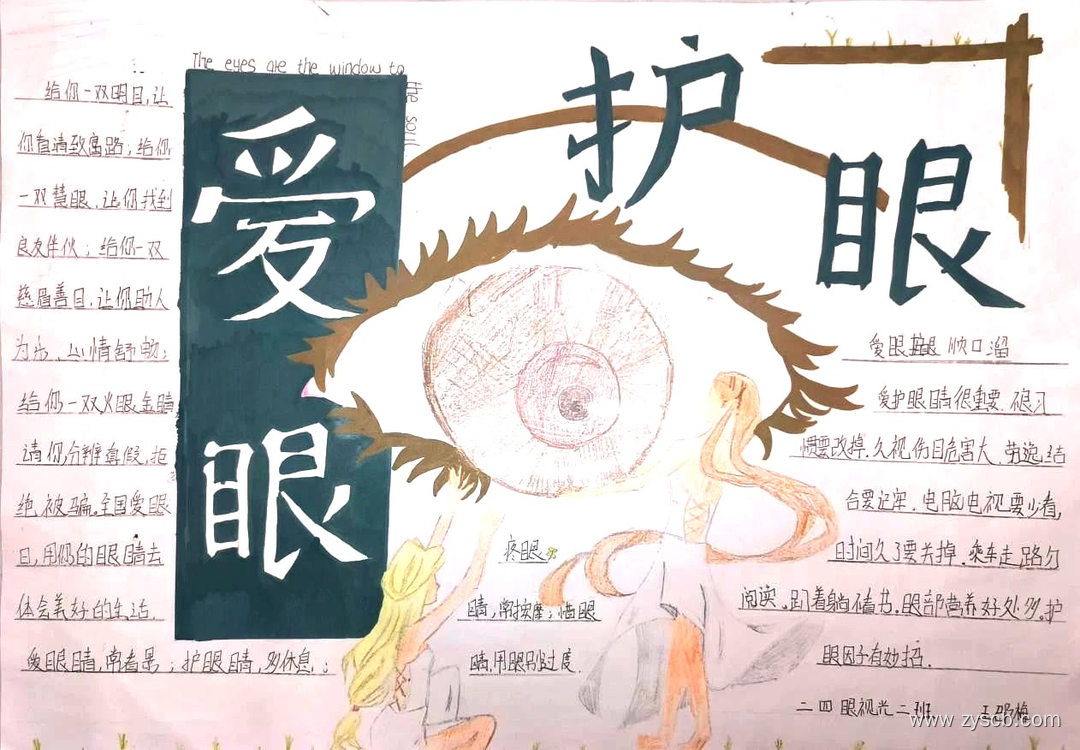 The eyes are the window to
the soul
爱
眼
护
眼
给你一双明目,让
你看清致富路;给你
一双慧眼,让你找到
良友伴伙;给你一双
慈眉善目,让你助人
为乐、心情舒畅;
给你一双火眼金睛
请你分辨真假,拒
绝被骗。全国爱眼
日,用你的眼睛去
体会美好的生活。
爱眼睛,常看景;护眼睛,多休息;
疼眼
睛,常按摩;惜眼
睛,用眼别过度.
爱眼 顺口溜
爱护眼睛很重要.
惯要改掉.久视伤目危害大.劳逸结
合要记牢.电脑电视要少看,
时间久了要关掉.乘车走路勿
阅读.趴着躺 看书.眼部营养好处多.护
眼因子有妙招.
二四眼视光二班
www.zyscb.com